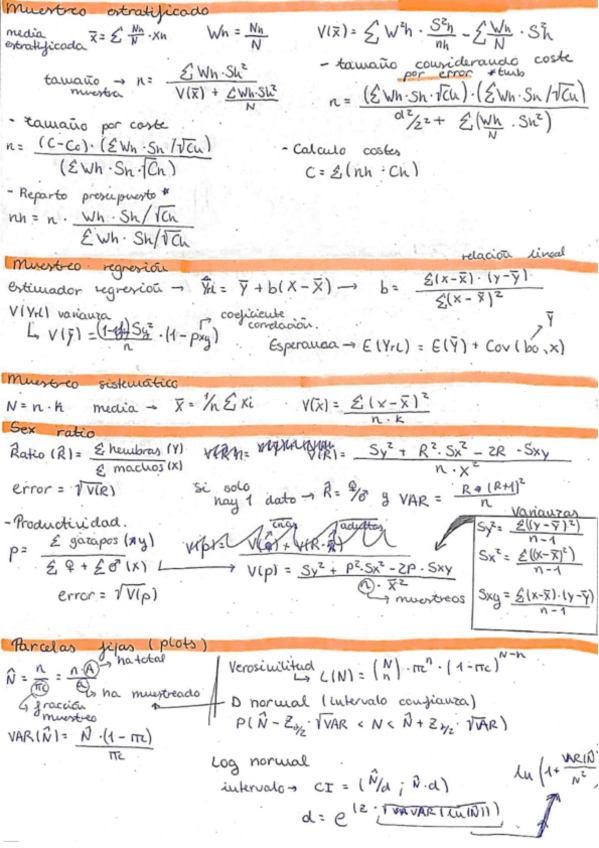 Muestreo estratificado
media estratificada x̄ = Σ Nh/N · xh    Wh = Nh/N    V(x̄) = Σ W²h · S²h/nh - Σ Wh/N · S²h
tamaño muestra → n = Σ Wh·Sh² / (V(x̄) + Σ Wh·Sh²/N)
- tamaño considerando coste por error *tmb
n = (Σ Wh·Sh·√Ch)·(Σ Wh·Sh/√Ch) / (d²/z² + Σ(Wh/N · Sh²))
- tamaño por coste
n = (C-Co)·(Σ Wh·Sh/√Ch) / (Σ Wh·Sh·√Ch)
- Calculo costes
C = Σ(nh · Ch)
- Reparto presupuesto *
nh = n · Wh·Sh/√Ch / Σ Wh·Sh/√Ch
Muestreo regresión
relación lineal
Estimador regresión → = ȳ + b(X - x̄) → b = Σ(x-x̄)·(y-ȳ) / Σ(x-x̄)²
V(Yrl) varianza
↳ V(ȳ) = Sy²/n · (1-ρxy) → coeficiente correlación.
Esperanza → E(Yrl) = E(Ȳ) + Cov(bo,x)
Ȳ
Muestreo sistemático
N = n·k    media → x̄ = 1/n Σ xi    V(x̄) = Σ(x-x̄)² / n·k
Sex ratio
Ratio (R̂) = Σ hembras (Y) / Σ machos (X)    V(R) = Sy² + R²·Sx² - 2R·Sxy / n·x²
error = √V(R)    Si solo hay 1 dato → R̂ = ♀/♂ y VAR = R*(R+1)² / n
- Productividad.
p = Σ gazapos (y) / Σ♀ + Σ♂ (x)
crías adultos
V(p) = Sy² + P²·Sx² - 2P·Sxy / n·x̄²
→ muestreos
error = √V(p)
Varianzas
Sy² = Σ((y-ȳ)²) / n-1
Sx² = Σ((x-x̄)²) / n-1
Sxy = Σ(x-x̄)·(y-ȳ) / n-1
Parcelas fijas (plots)
N̂ = n/πc = n·A/a
→ ha total
↳ ha muestreado
↳ fracción muestreo
VAR(N̂) = N̂·(1-πc) / πc
Verosimilitud
↳ L(N) = (N n) · πcⁿ · (1-πc)^(N-n)
D normal (intervalo confianza)
P(N̂ - Zα/2 · √VAR < N < N̂ + Zα/2 · √VAR)
Log normal
intervalo → CI = (N̂/d ; N̂·d)
d = e^(z·√VAR(ln(N̂)))
ln(1 + VAR(N̂)/N²)